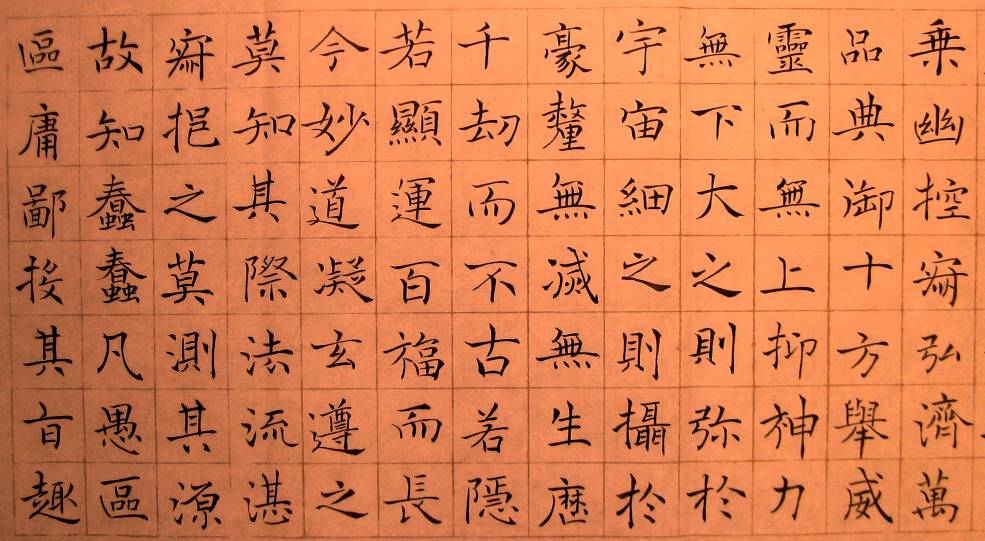 乗幽控寂弘濟萬
品典御十方舉威
靈而無上抑神力
無下大之則弥於
宇宙細之則攝於
豪釐無滅無生歷
千劫而不古若隱
若顯運百福而長
今妙道凝玄遵之
莫知其際法流湛
寂挹之莫測其源
故知蠢蠢凡愚區
區庸鄙投其旨趣